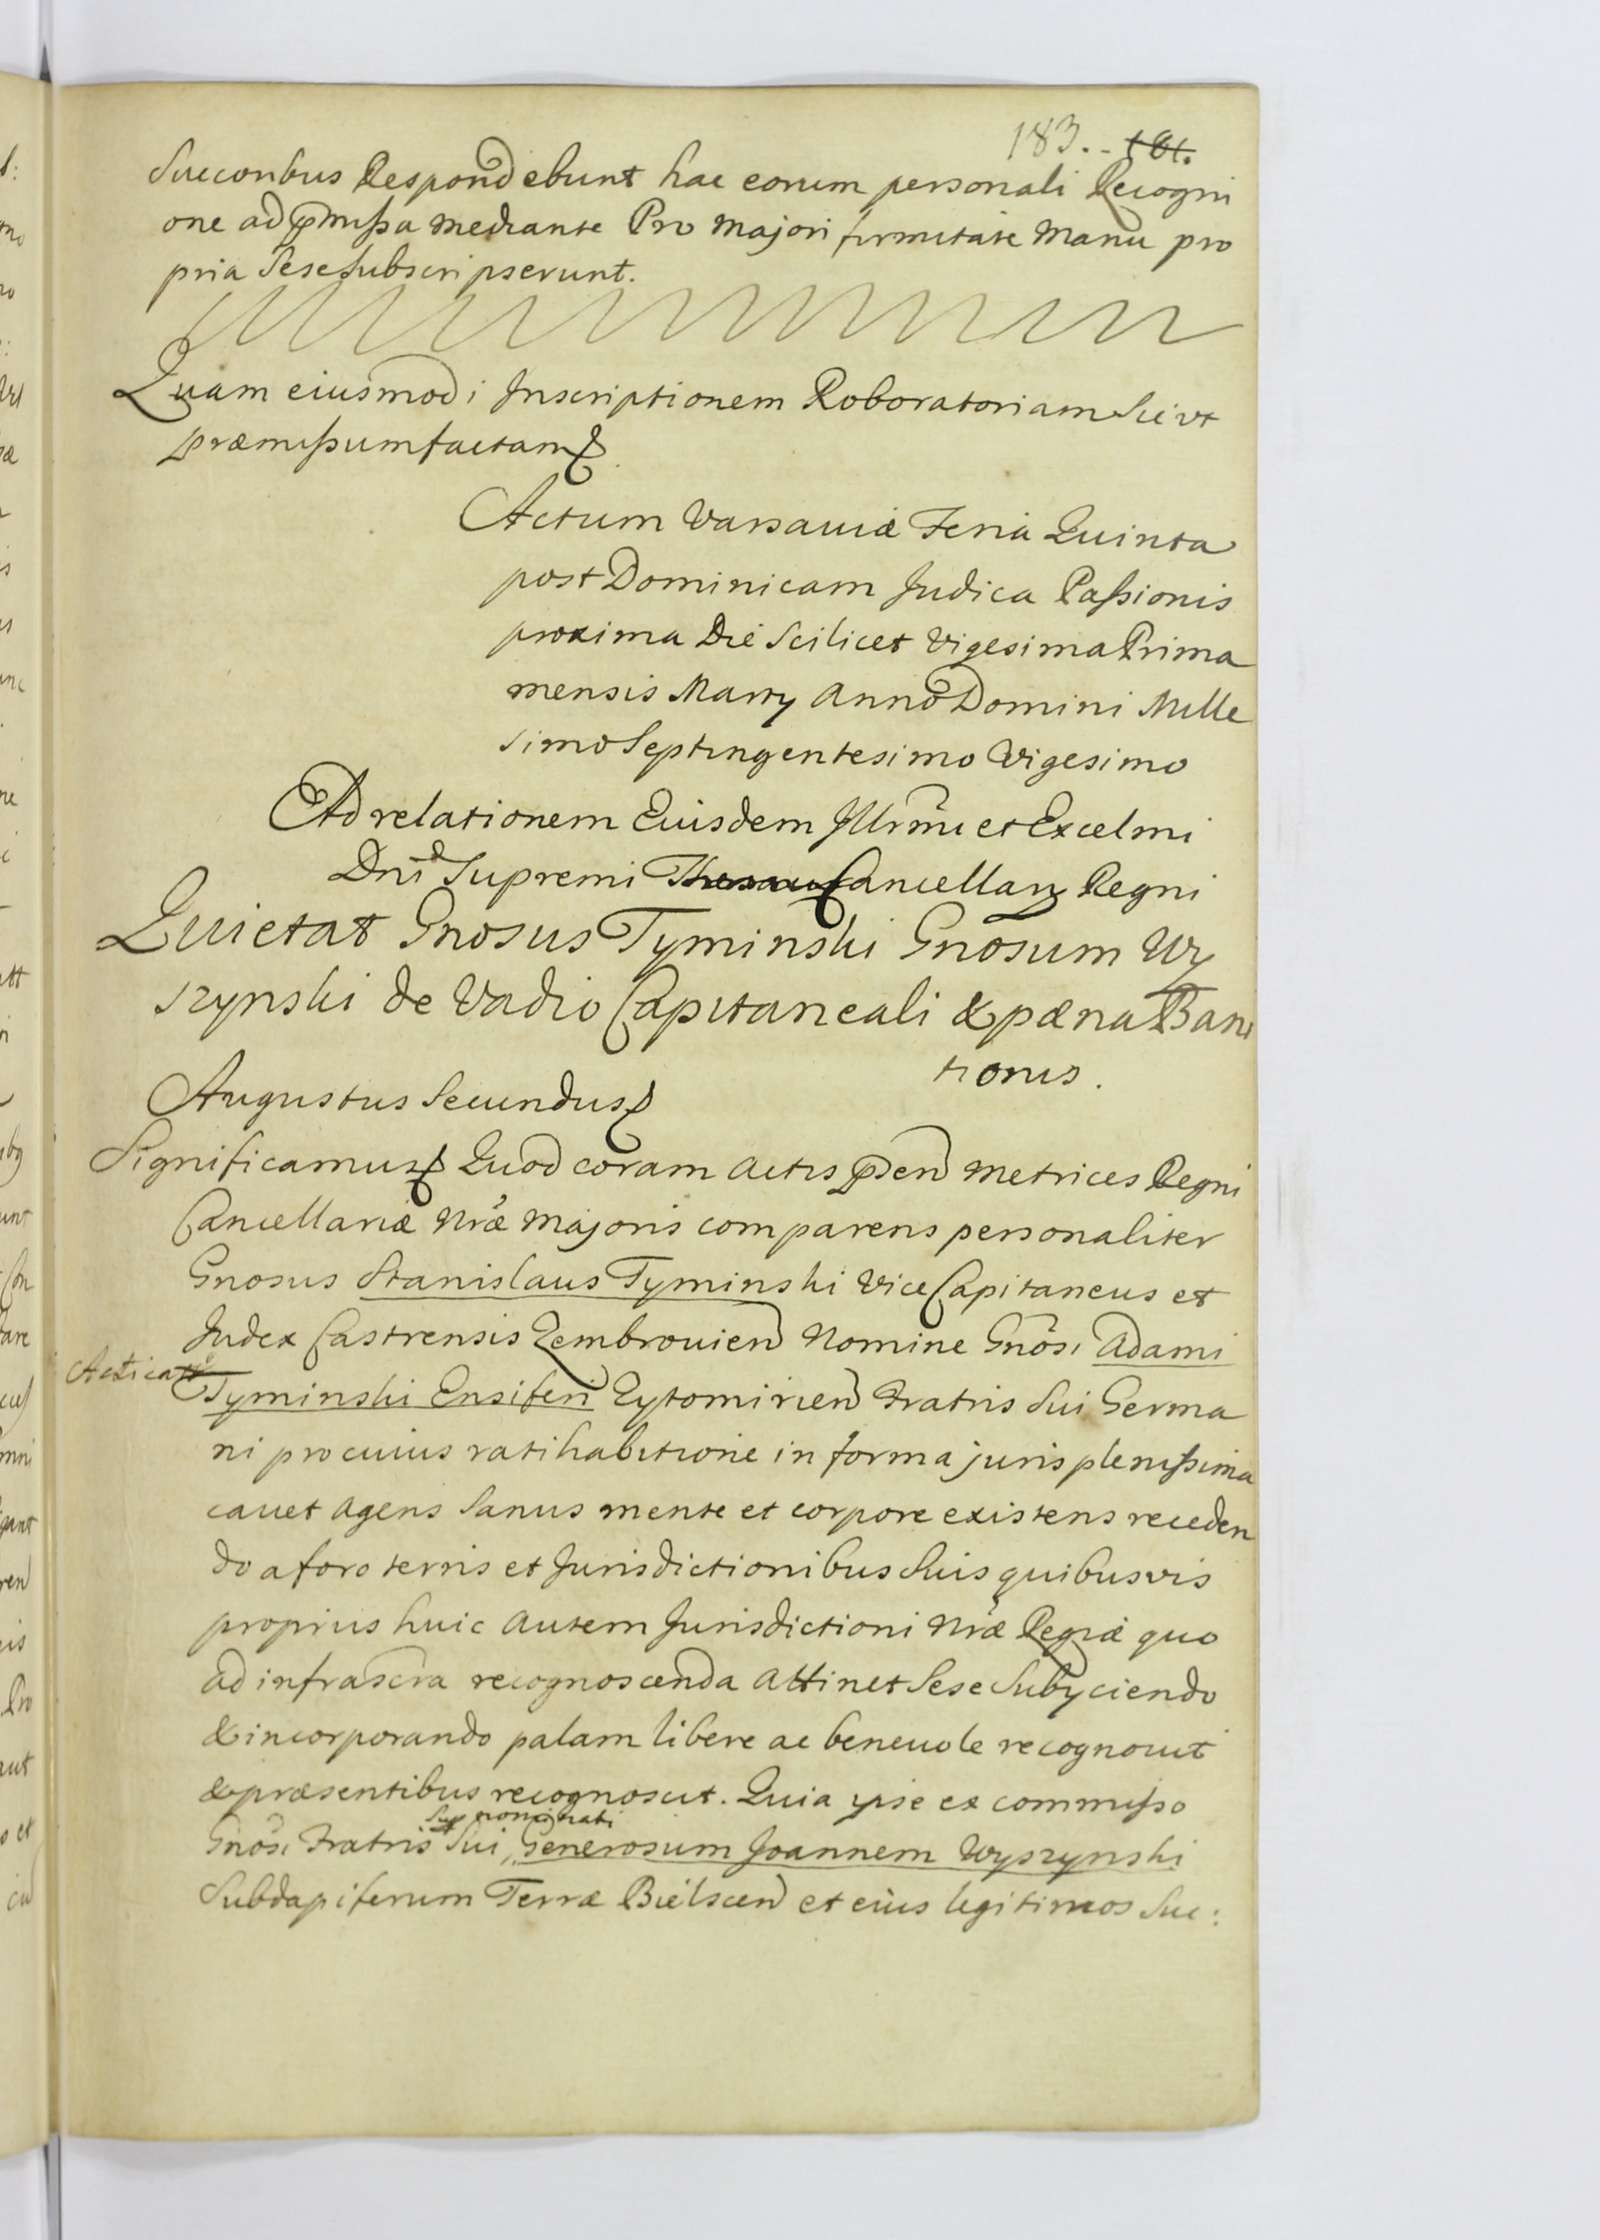 183. - 181.
Succoribus Respondebunt hac eorum personali Recogni
one ad pmissa mediante Pro majori firmitate Manu pro
pria Sese subscripserunt.
Quam eiusmodi Inscriptionem Roboratoriam Sic vt
præmissum factam
Actum Varsaviæ Feria Quinta
post Dominicam Judica Passionis
proxima Die Scilicet Vigesima Prima
mensis Marty Anno Domini Mille
simo Septingentesimo Vigesimo
Ad relationem Eiusdem Illrmi et Excelmi
Dni D Supremi Cancellarij Regni
Quietat Gnosus Tyminski Gnosum Wy
szynski de Vadio Capitaneali & pæna Bani
tionis.
Augustus Secundus
Significamus Quod coram Actis psen Metrices Regni
Cancellariæ Nræ Majoris comparens personaliter
Gnosus Stanislaus Tyminski Vice Capitaneus et
Judex Castrensis Zembrovien Nomine Gnosi Adami
Acticat
Tyminski Ensiferi Zytomirien Fratris Sui Germa
ni pro cuius ratihabitione in forma juris plenissima
cavet Agens Sanus mente et corpore existens receden
do a foro terris et Jurisdictionibus Suis quibusvis
proprius huic Autem Jurisdictioni Nræ Regiæ quo
ad infrascra recognoscenda Attinet Sese Subyciendo
& incorporando palam libere ac benevole recognovit
& præsentibus recognoscit. Quia ipse ex commisso
nominati
Gnosi Fratris Sui, Generosum Joannem Wyszynski
Subdapiferum Terræ Bielscen et eius legitimos Suc: